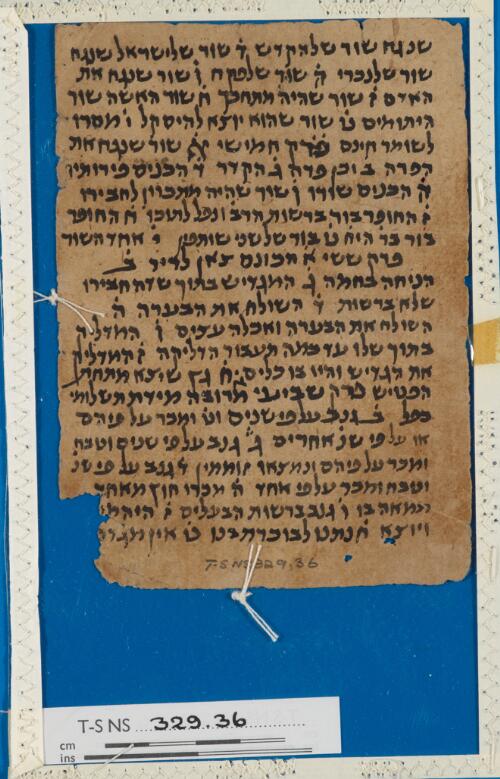 שנגח שור שלהקדש ד שור שלישראל שנגח
שור שלנכרי ה שור שלפקח ו שור שנגח את
האדם ז שור שהיה מתחכך ח שור האשה שור
היתומים ט שור שהוא יוצא להיסקל י מסרו
לשומר חינם פרק חמישי א שור שנגח את
הפרה ב וכן פרה ג הקדר ד הכניס פירותיו
ה הכניס שורו ו שור שהיה מתכוון לחבירו
ז החופר בור ברשות הרב ונפל לתוכו ח החופר
בור בר היח ט בור שלשני שותפן י אחד השור
פרק ששי א הכונס צאן לדיר ב
הניחה בחמה ג המגדיש בתוך שדה חבירו
שלא ברשות ד השולח את הבערה ה
השולח את הבערה ואכלה עצים ו המדליק
בתוך שלו עד כמה תעבור הדליקה ז המדליק
את הגדיש והיו בו כלים ח גץ שיצא מתחת
הפטיש פרק שביעי מרובה מידת תשלומי
כפל ב גנב על פי שנים וט ומכר על פיהם
או על פי שנ אחרים ג גנב על פי שנים וטבח
ומכר על פיהם ונמצאו זוממין ד גנב על פי שנ
וטבח ומכר על פי אחד ה מכרו חוץ מאחד
ממאה בו ו גנב ברשות הבעלים ז היה
ויוצא ח נתנו לבכורת בנו ט אין מגד
T-S NS 329.36
T-S NS 329.36
cm
ins